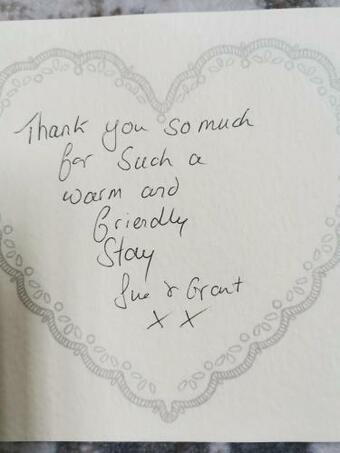 Thank you so much
for Such a
warm and
friendly
Stay
Sue & Grant
x x